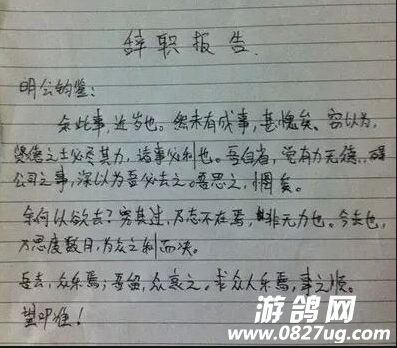 辞职报告
明公钧鉴:
余此事,近岁也。然未有成事,甚愧矣。窃以为,
贤德之士必尽其力,诸事必利也。吾自省,觉有力无德,碍
公司之事,深以为吾必去之。吾思之,惘矣。
余何以欲去?究其过,乃志不在焉,非无力也。今去也,
乃思度数月,为众之利而决。
吾去,众乐焉;吾留,众哀之。求众人乐焉,事之顺。
望叩准!
游鸽网
www.0827ug.com